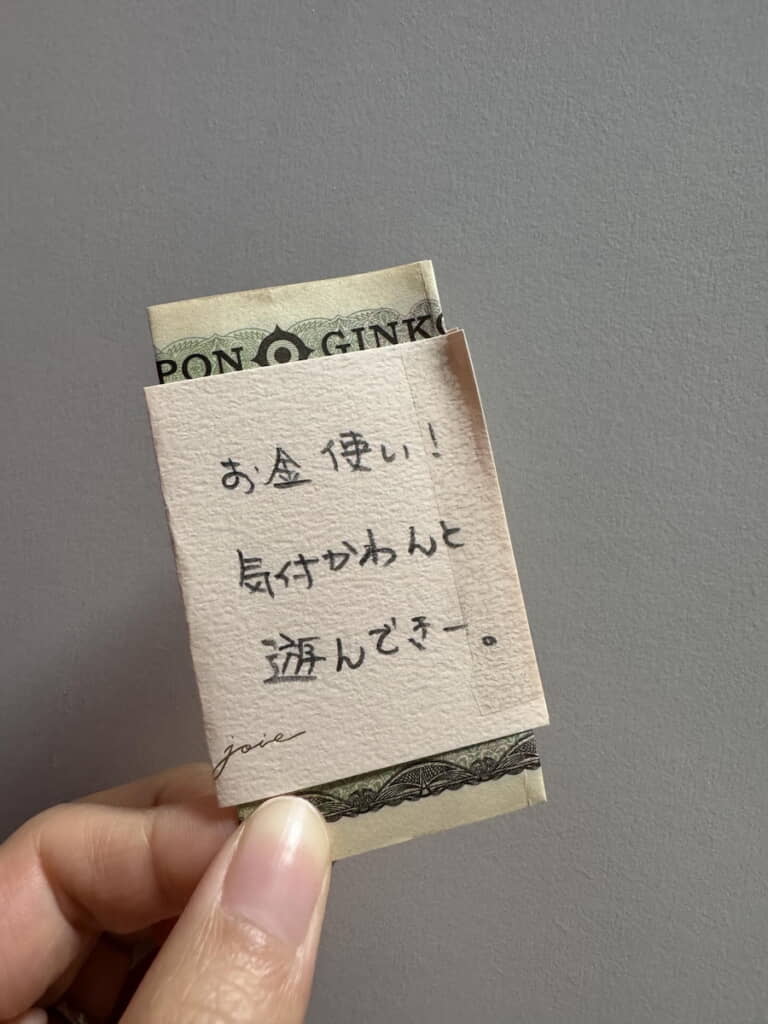 PON GINKO
お金使い！
気付かわんと
遊んできー。
joie